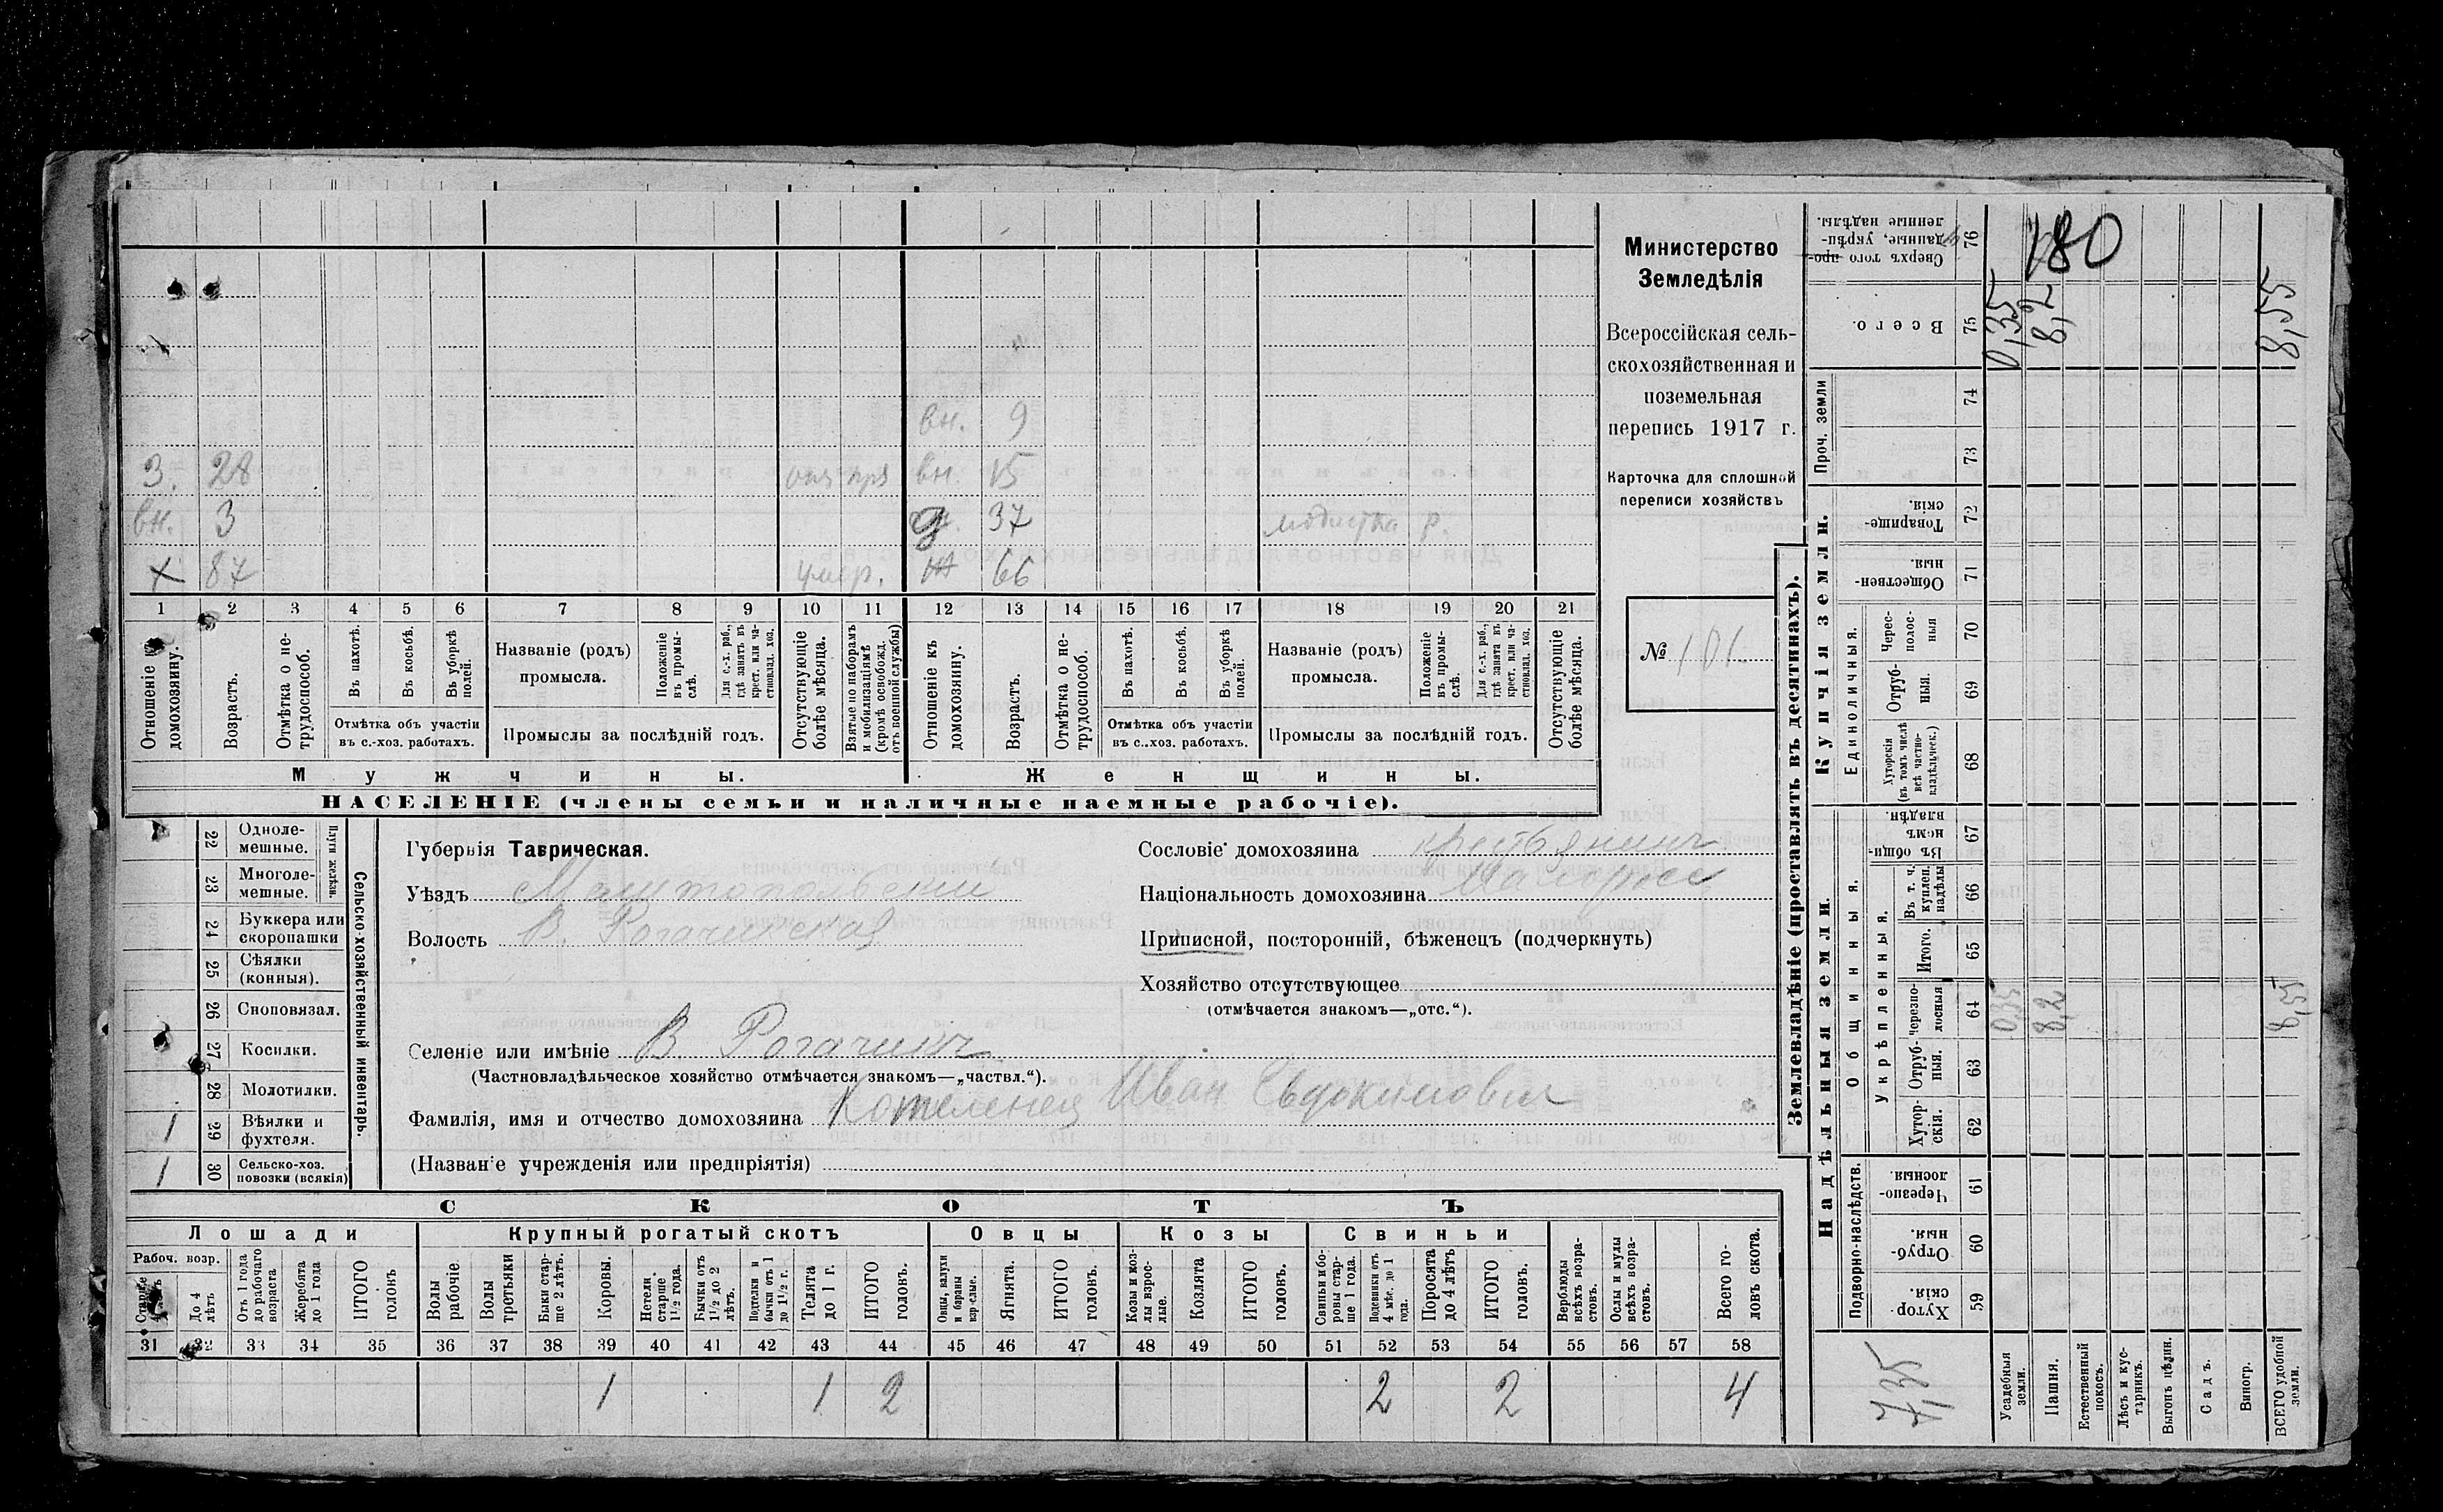 вн. 9
З. 28 вн. 15
вн. 3 д 37 модистка р.
х 87 умер. 66
1 2 3 4 5 6 7 8 9 10 11 12 13 14 15 16 17 18 19 20 21
Отношеніе къ домохозяину.
Возрастъ.
Отмѣтка о не-
трудоспособ.
Въ пахотѣ.
Въ косьбѣ.
Въ уборкѣ полей.
Отмѣтка объ участіи
въ с.-хоз. работахъ.
Названіе (родъ)
промысла.
Положеніе въ промы-
слѣ.
Для с.-х. раб., гдѣ занятъ въ крест. или ча-
стновлад. хоз.
Промыслы за послѣдній годъ.
Отсутствующіе болѣе мѣсяца.
Взятые по наборамъ и мобилизаціямъ (кромѣ освобожд. отъ военной службы)
Отношеніе къ домохозяину.
Возрастъ.
Отмѣтка о не-
трудоспособ.
Въ пахотѣ.
Въ косьбѣ.
Въ уборкѣ полей.
Отмѣтка объ участіи
въ с..хоз. работахъ.
Названіе (родъ)
промысла.
Положеніе въ промы-
слѣ.
Для с.-х. раб., гдѣ занята въ крест. или ча-
стновлад. хоз.
Промыслы за послѣдній годъ.
Отсутствующіе болѣе мѣсяца.
Мужчины. Женщины.
НАСЕЛЕНІЕ (члены семьи и наличные наемные рабочіе).
Министерство
Земледѣлія
Всероссійская сель-
скохозяйственная и
поземельная
перепись 1917 г.
Карточка для сплошной
переписи хозяйствъ
№ 101.
22 Одноле-
мешные.
23 Многоле-
мешные.
Плуги желѣзн.
24 Буккера или
скоропашки
25 Сѣялки
(конныя).
26 Сноповязал.
27 Косилки.
28 Молотилки.
1 29 Вѣялки и
фухтеля.
1 30 Сельско-хоз.
повозки (всякія)
Сельско-хозяйственный инвентарь.
Губернія Таврическая.
Уѣздъ Мелитопольскій
Волость В. Рогачикская
Селеніе или имѣніе В. Рогачикъ
(Частновладѣльческое хозяйство отмѣчается знакомъ—„частвл.“).
Фамилія, имя и отчество домохозяина Котеленец Иван Евдокимович
(Названіе учрежденія или предпріятія)
Сословіе домохозяина крестьянинъ
Національность домохозяина Малоросс
Приписной, посторонній, бѣженецъ (подчеркнуть)
Хозяйство отсутствующее
(отмѣчается знакомъ—„отс.“).
СКОТЪ
Лошади Крупный рогатый скотъ Овцы Козы Свиньи
Рабоч. возр.
Старше 4 лѣтъ
До 4 лѣтъ
Отъ 1 года до рабочаго возраста
Жеребята до 1 года
ИТОГО головъ
Волы рабочіе.
Волы третьяки
Быки стар-
ше 2 лѣтъ.
Коровы.
Нетели старше 1½ года.
Бычки отъ 1½ до 2 лѣтъ.
Подтелки и бычки отъ 1 до 1½ г.
Телята до 1 г.
ИТОГО головъ.
Овцы, валухи и бараны взрослые.
Ягнята.
ИТОГО головъ.
Козы и коз-
лы взрос-
лые.
Козлята
ИТОГО головъ.
Свиньи и бо-
ровы стар-
ше 1 года.
Подсвинки отъ 4 мѣс. до 1 года.
Поросята до 4 лѣтъ
ИТОГО головъ.
Верблюды всѣхъ возра-
стовъ.
Ослы и мулы всѣхъ возра-
стовъ.
Всего го-
ловъ скота.
31 32 33 34 35 36 37 38 39 40 41 42 43 44 45 46 47 48 49 50 51 52 53 54 55 56 57 58
1 1 2 2 2 4
Землевладѣніе (проставлять въ десятинахъ).
Надѣльныя земли.
Купчія земли.
Проч. земли
Подворно-наслѣдств.
Общинныя.
Укрѣпленныя.
Единоличныя.
Сверхъ того про-
данные, укрѣп-
ленные надѣлы. 76
180
Всего. 75 0,35 8,2 8,55
74
73
Товарище-
скія. 72
Обществен-
ныя. 71
Черес-
полос-
ныя 70
Отруб-
ныя. 69
Хуторскія
(въ томъ числѣ
всѣ частно-
владѣльческ.) 68
Въ общин-
номъ
владѣн. 67
Въ т. ч.
куплен.
надѣлы 66
Итого. 65
черезпо-
лосныя 64 0,35 8,2 8,55
Отруб-
ныя. 63
Хутор-
скія. 62
Черезпо-
лосныя 61
Отруб-
ныя. 60
Хутор-
скія. 59
7,35
Усадебныя земли.
Пашня.
Естественный покосъ.
Лѣсъ и кус-
тарникъ.
Выгонъ цѣлин.
Садъ.
Виногр.
ВСЕГО удобной земли.